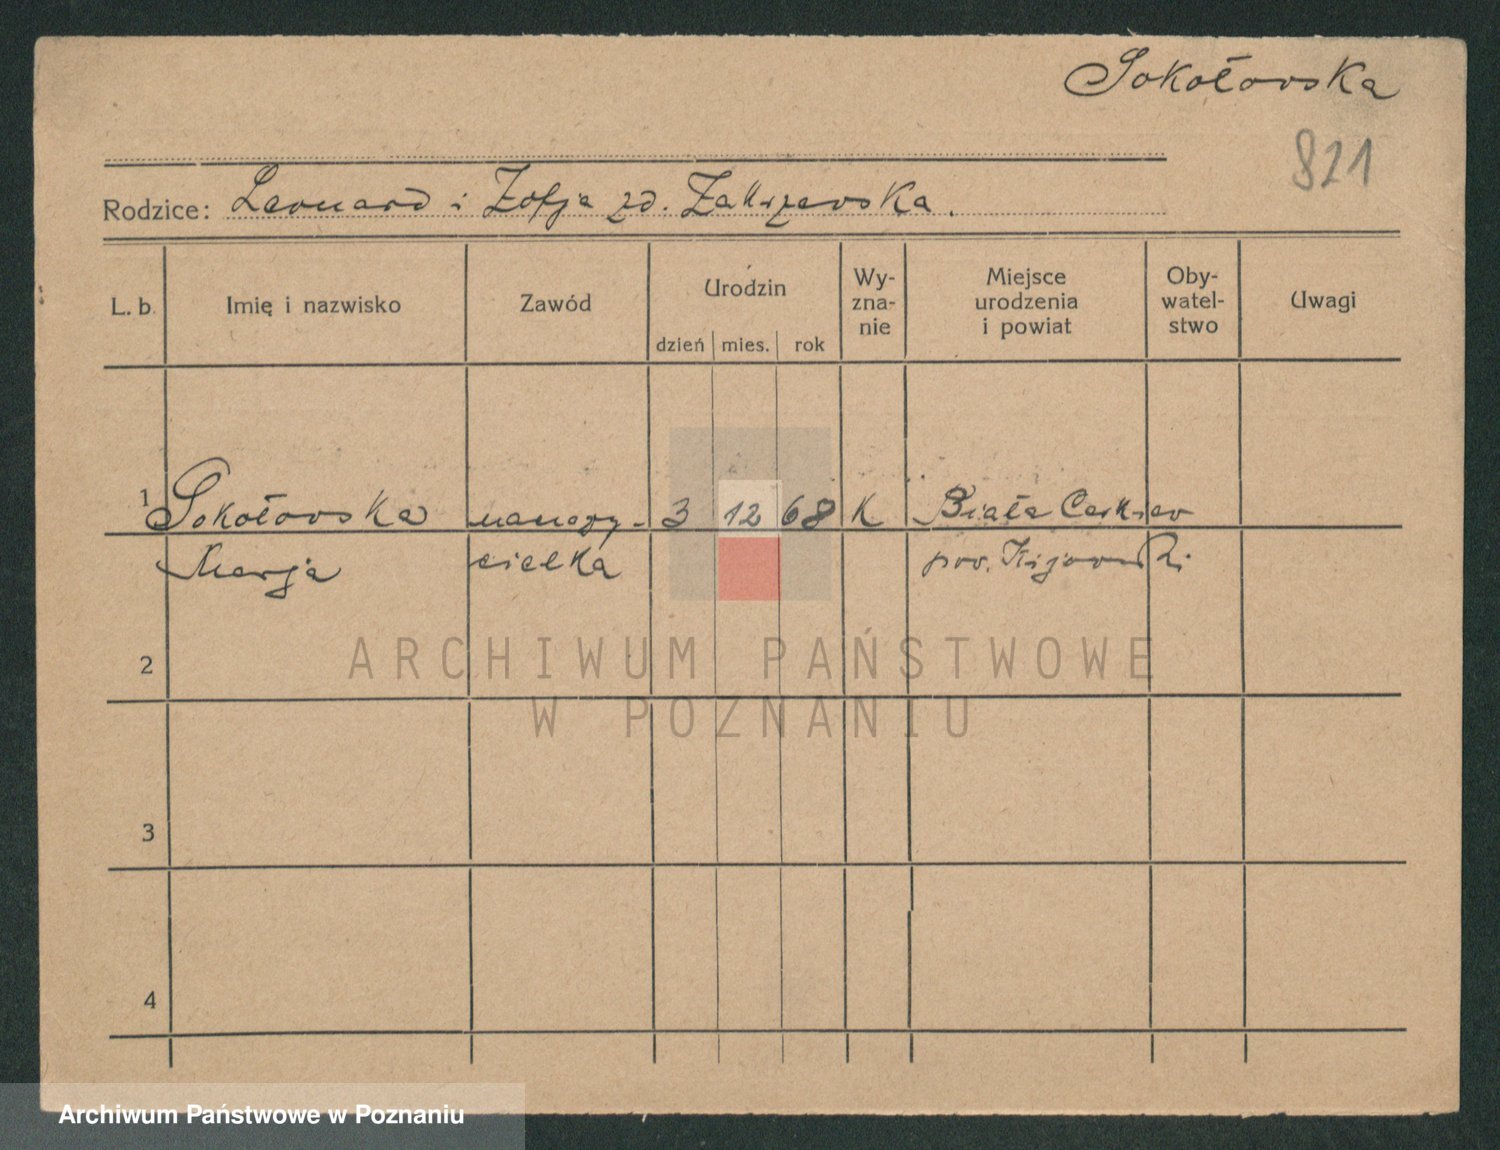 Sokołowska
821
Rodzice: Leonard i Zofja zd. Zakrzewska.
L. b. Imię i nazwisko Zawód Urodzin Wy- Miejsce Oby- Uwagi
zna- urodzenia watel-
nie i powiat stwo
dzień mies. rok
1 Sokołowska nauczy- 3 12 68 K Biała Cerkiew
Marja cielka pow. Kijowski
2
ARCHIWUM PAŃSTWOWE
W POZNANIU
3
4
Archiwum Państwowe w Poznaniu